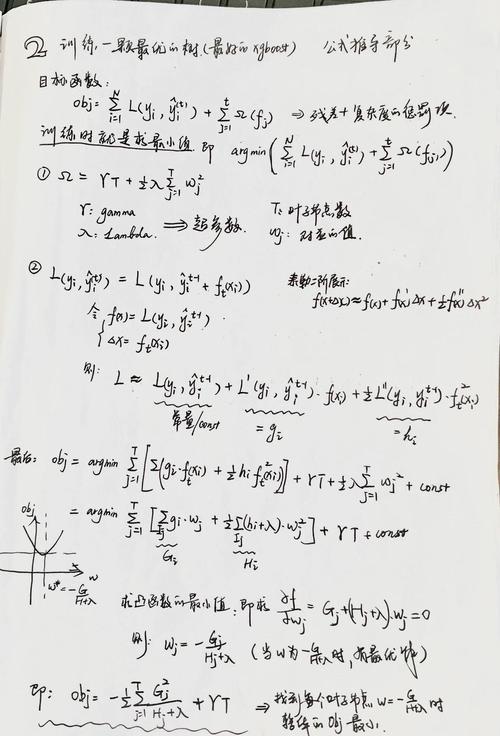 2 训练一颗最优的树.(最好的xgboost) 公式推导部分
目标函数:
obj = Σ_{i=1}^{N} L(y_i, ŷ_i^{(t)}) + Σ_{j=1}^{t} Ω(f_j) ⇒ 残差+复杂度的惩罚项.
训练时就是求最小值 即 argmin(Σ_{i=1}^{N} L(y_i, ŷ_i^{(t)}) + Σ_{j=1}^{t} Ω(f_j))
① Ω = γT + ½λ Σ_{j=1}^{T} w_j²
γ: gamma ⇒ 超参数. T: 叶子节点数
λ: Lambda. w_j: 对应的值.
② L(y_i, ŷ_i^{(t)}) = L(y_i, ŷ_i^{t-1} + f_t(x_i)) 泰勒二阶展示:
f(x+Δx) ≈ f(x) + f'(x)Δx + ½f''(x)Δx²
令 { f(x) = L(y_i, ŷ_i^{t-1}).
Δx = f_t(x_i)
则: L ≈ L(y_i, ŷ_i^{t-1}) + L'(y_i, ŷ_i^{t-1})·f(x_i) + ½L''(y_i, ŷ_i^{t-1})·f_t²(x_i)
常量/const = g_i = h_i
最后: obj = argmin Σ_{j=1}^{T} [Σ(g_i·f_t(x_i) + ½h_i f_t²(x_i))] + γT + ½λ Σ_{j=1}^{T} w_j² + const
= argmin Σ_{j=1}^{T} [Σ_{I_j} g_i·w_j + ½Σ_{I_j}(h_i+λ)·w_j²] + γT + const
G_i H_i
obj
w
w* = -G/(H+λ)
求凸函数的最小值: 即求 ∂f/∂w_j = G_j + (H_j+λ)·w_j = 0
则: w_j = -G_j/(H_j+λ) (当w为 -G/(H+λ) 时, 有最优解)
即: obj = -½ Σ_{j=1}^{T} G_j²/(H_j+λ) + γT ⇒ 找到每个叶子节点 w = -G/(H+λ) 时
整体的obj最小.